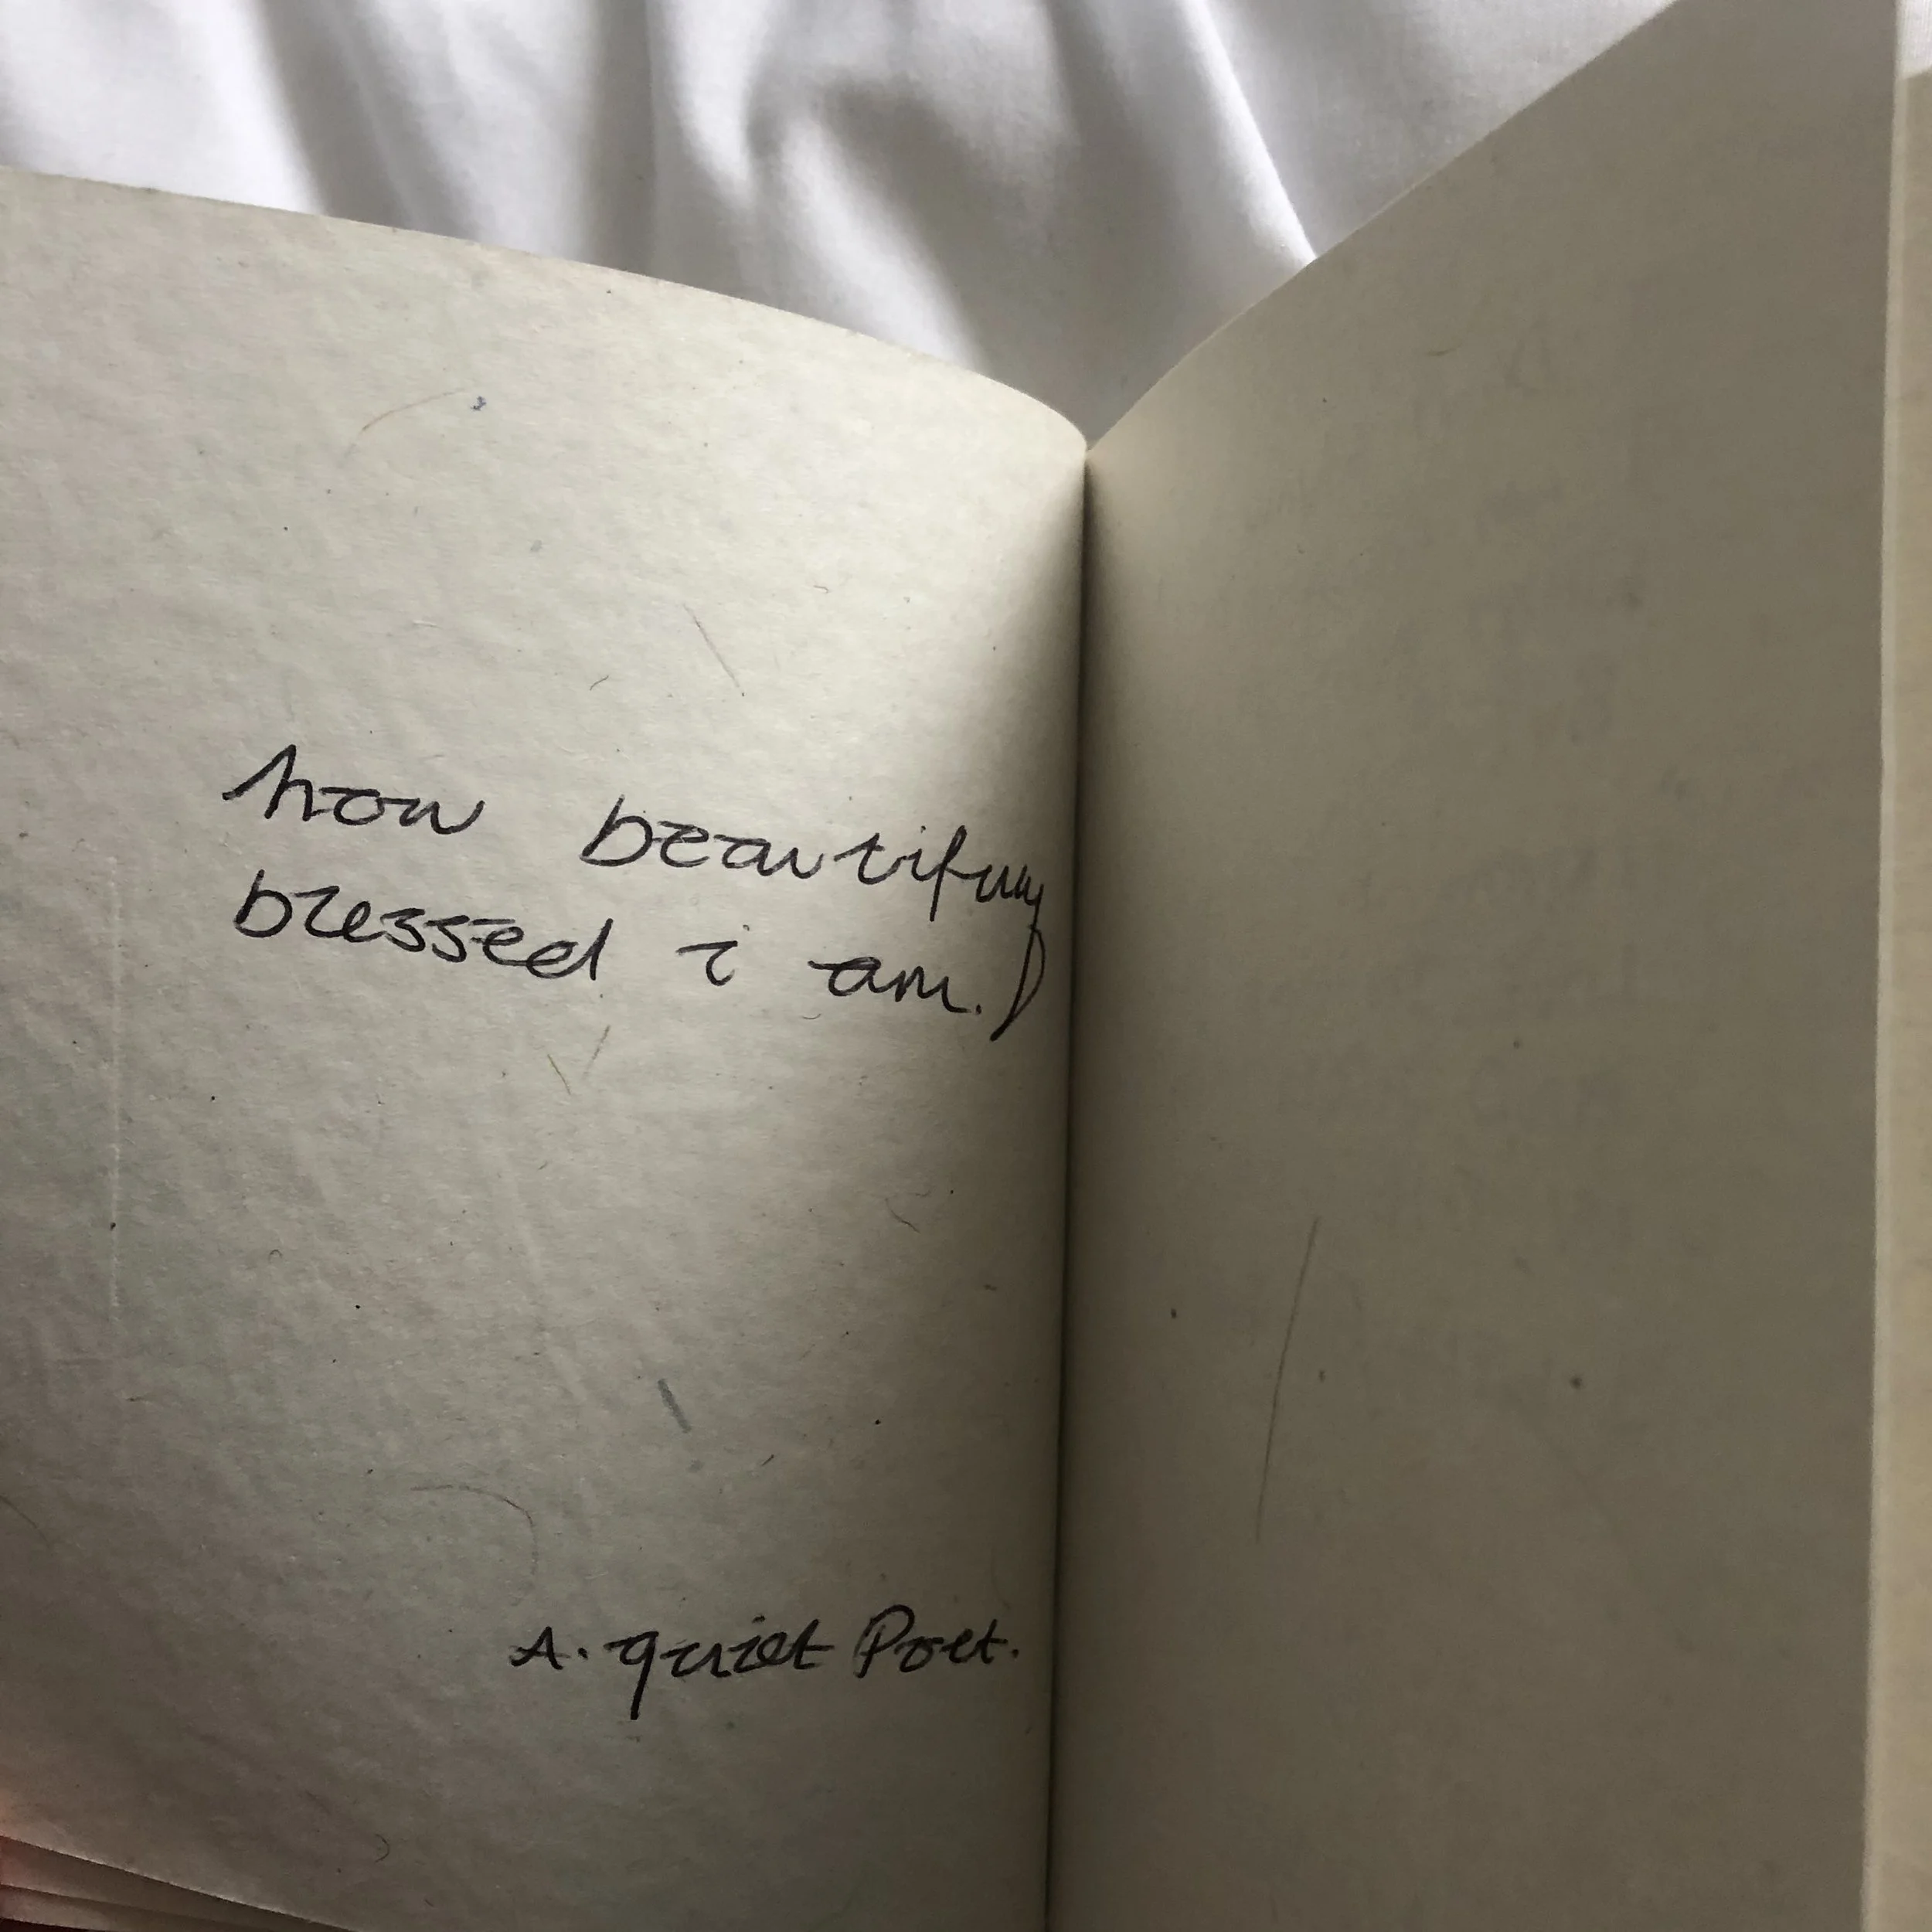 how beautifully
blessed i am.
A. quiet Poet.